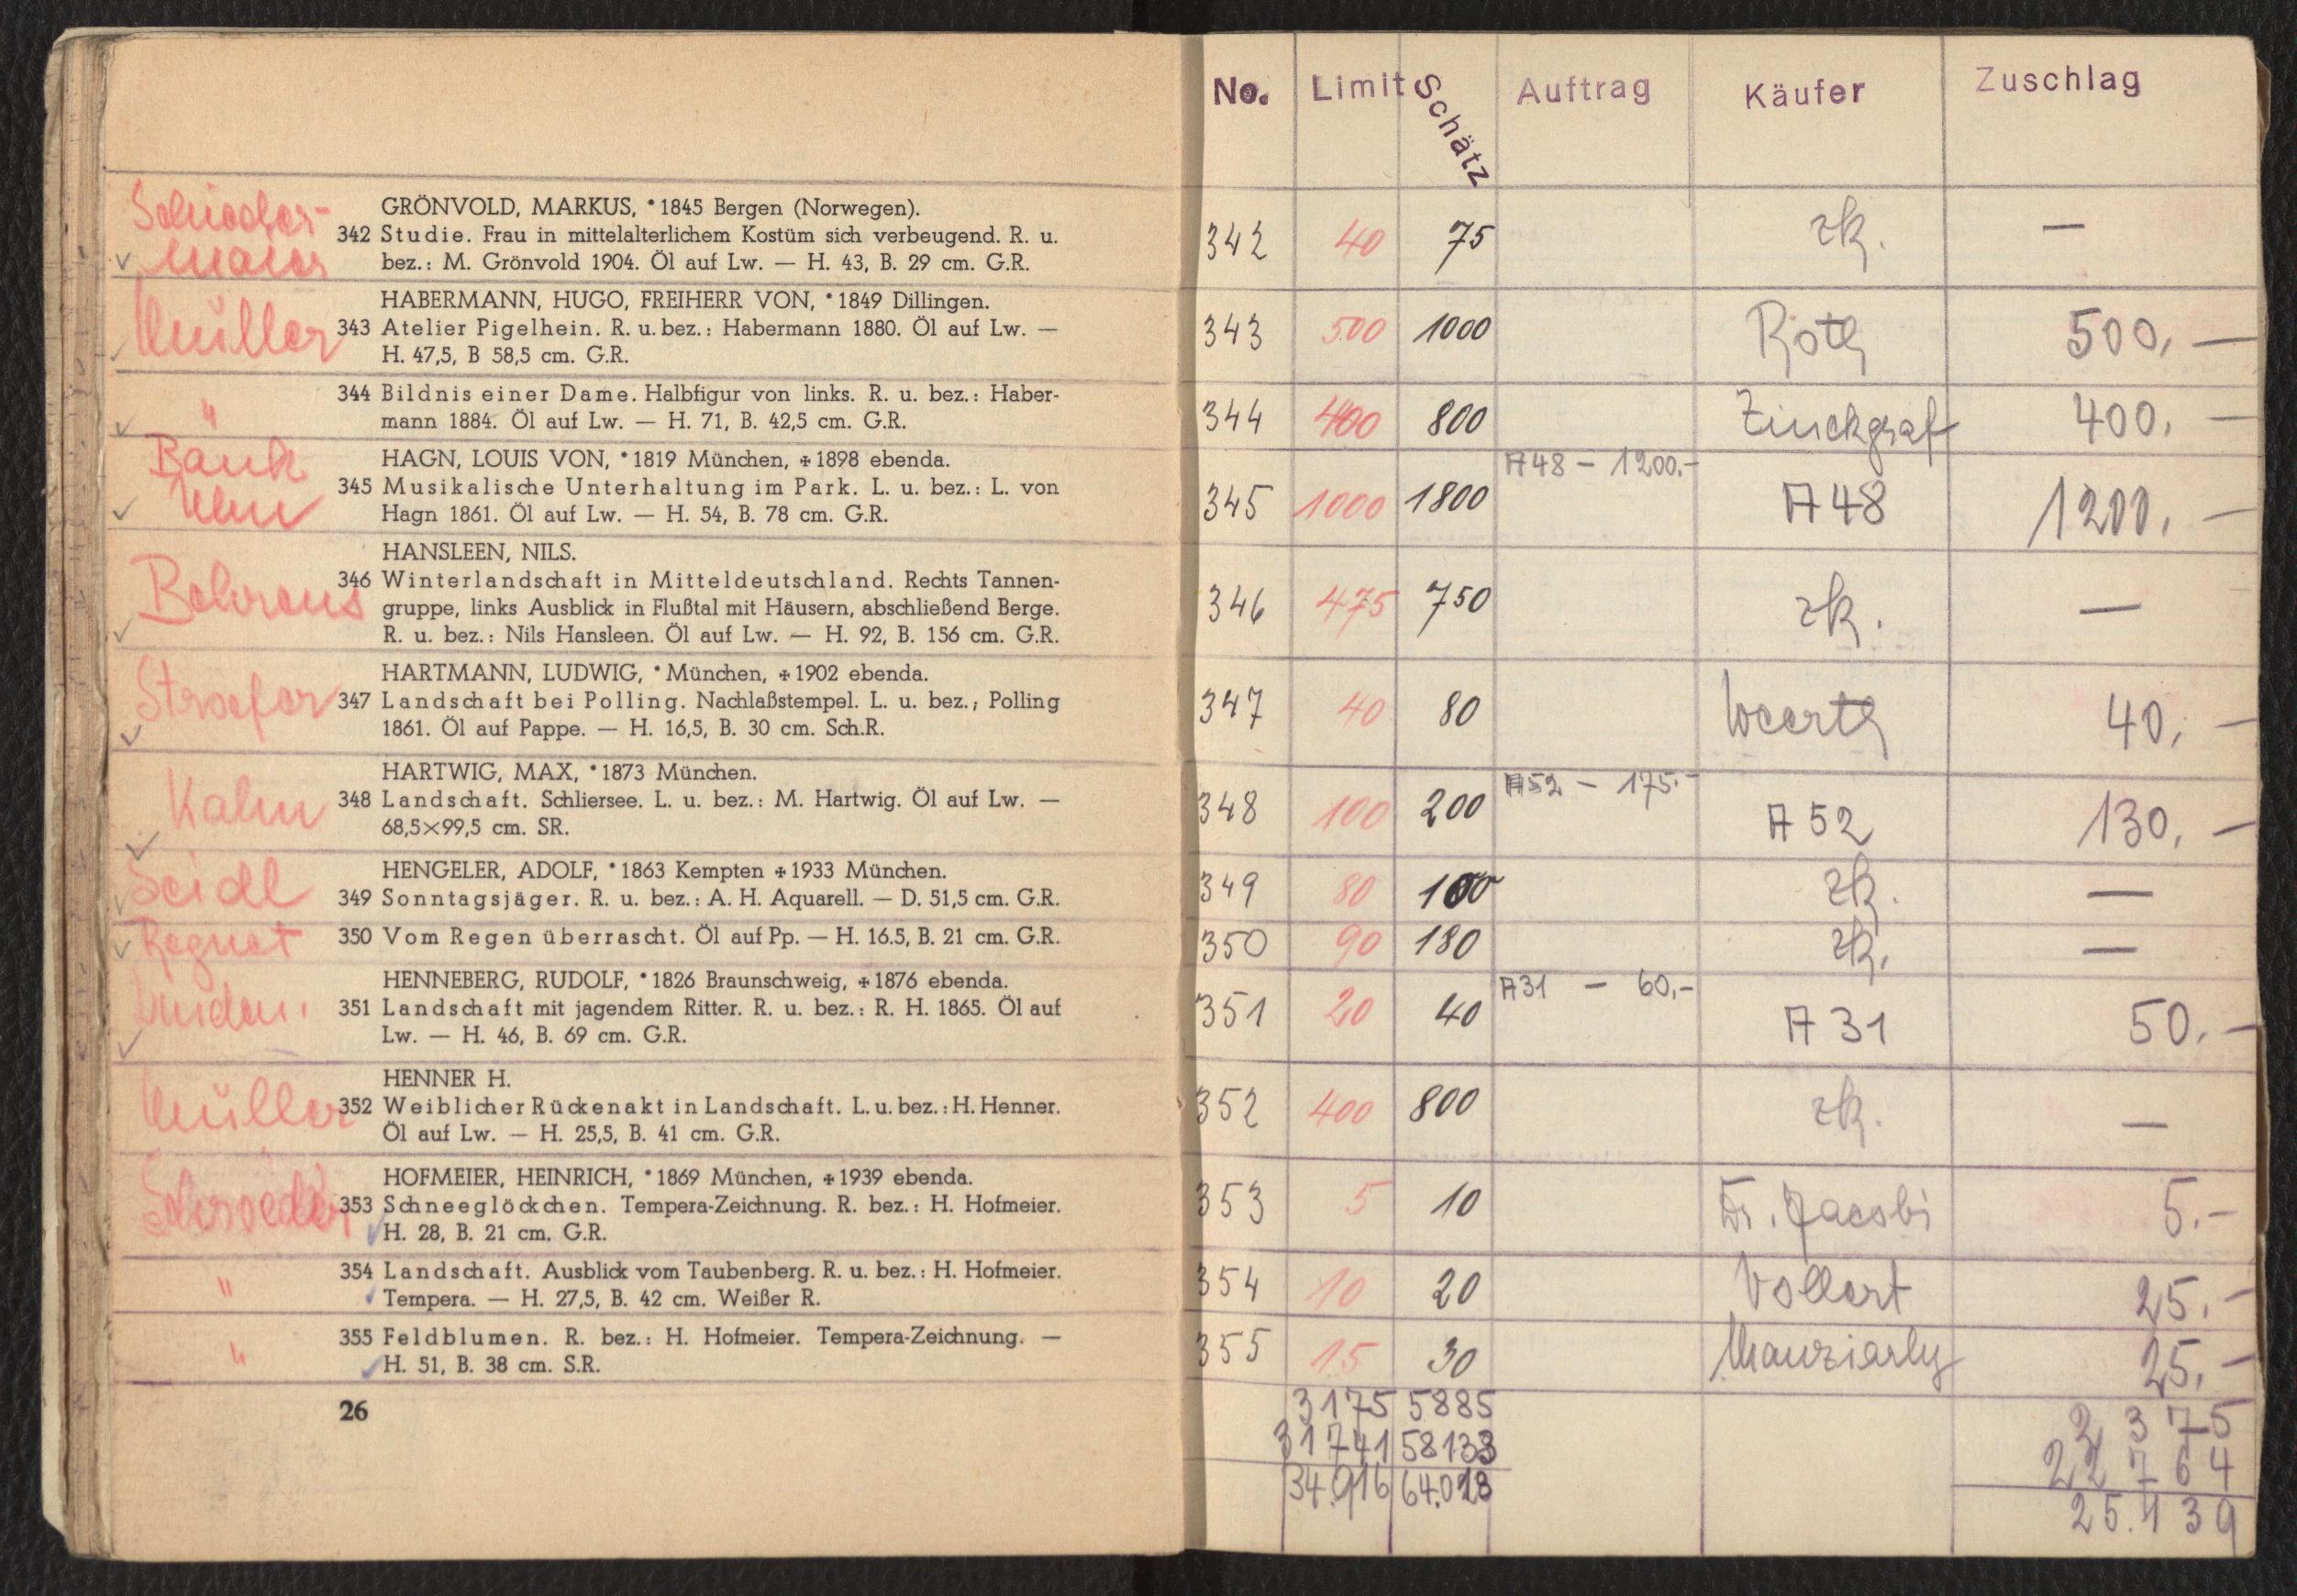 GRÖNVOLD, MARKUS, *1845 Bergen (Norwegen).
342 Studie. Frau in mittelalterlichem Kostüm sich verbeugend. R. u.
bez.: M. Grönvold 1904. Öl auf Lw. — H. 43, B. 29 cm. G.R.
Müller
HABERMANN, HUGO, FREIHERR VON, *1849 Dillingen.
343 Atelier Pigelhein. R. u. bez.: Habermann 1880. Öl auf Lw. —
H. 47,5, B 58,5 cm. G.R.
"
344 Bildnis einer Dame. Halbfigur von links. R. u. bez.: Haber-
mann 1884. Öl auf Lw. — H. 71, B. 42,5 cm. G.R.
Bank
HAGN, LOUIS VON, *1819 München, ✠1898 ebenda.
345 Musikalische Unterhaltung im Park. L. u. bez.: L. von
Hagn 1861. Öl auf Lw. — H. 54, B. 78 cm. G.R.
Behrens
HANSLEEN, NILS.
346 Winterlandschaft in Mitteldeutschland. Rechts Tannen-
gruppe, links Ausblick in Flußtal mit Häusern, abschließend Berge.
R. u. bez.: Nils Hansleen. Öl auf Lw. — H. 92, B. 156 cm. G.R.
Stroefer
HARTMANN, LUDWIG, *München, ✠1902 ebenda.
347 Landschaft bei Polling. Nachlaßstempel. L. u. bez.; Polling
1861. Öl auf Pappe. — H. 16,5, B. 30 cm. Sch.R.
Kahn
HARTWIG, MAX, *1873 München.
348 Landschaft. Schliersee. L. u. bez.: M. Hartwig. Öl auf Lw. —
68,5×99,5 cm. SR.
Seidl
HENGELER, ADOLF, *1863 Kempten ✠1933 München.
349 Sonntagsjäger. R. u. bez.: A. H. Aquarell. — D. 51,5 cm. G.R.
Regnet
350 Vom Regen überrascht. Öl auf Pp. — H. 16.5, B. 21 cm. G.R.
HENNEBERG, RUDOLF, *1826 Braunschweig, ✠1876 ebenda.
351 Landschaft mit jagendem Ritter. R. u. bez.: R. H. 1865. Öl auf
Lw. — H. 46, B. 69 cm. G.R.
Müller
HENNER H.
352 Weiblicher Rückenakt in Landschaft. L. u. bez.: H. Henner.
Öl auf Lw. — H. 25,5, B. 41 cm. G.R.
Schroeder
HOFMEIER, HEINRICH, *1869 München, ✠1939 ebenda.
353 Schneeglöckchen. Tempera-Zeichnung. R. bez.: H. Hofmeier.
H. 28, B. 21 cm. G.R.
"
354 Landschaft. Ausblick vom Taubenberg. R. u. bez.: H. Hofmeier.
Tempera. — H. 27,5, B. 42 cm. Weißer R.
"
355 Feldblumen. R. bez.: H. Hofmeier. Tempera-Zeichnung. —
H. 51, B. 38 cm. S.R.
26
No. Limit Schätz Auftrag Käufer Zuschlag
342 40 75 zk. —
343 500 1000 Roth 500,—
344 400 800 Zinckgraf 400,—
A48 – 1200.-
345 1000 1800 A48 1200,—
346 475 750 zk. —
347 40 80 Weerth 40,—
A52 – 175.-
348 100 200 A 52 130,—
349 80 100 zk. —
350 90 180 zk. —
A31 – 60,-
351 20 40 A 31 50.—
352 400 800 zk. —
353 5 10 Dr. Jacobi 5.-
354 10 20 Vollert 25.—
355 15 30 Manziarly 25.—
3175 5885 2 375
31741 58133 22 764
34.916 64.018 25.139